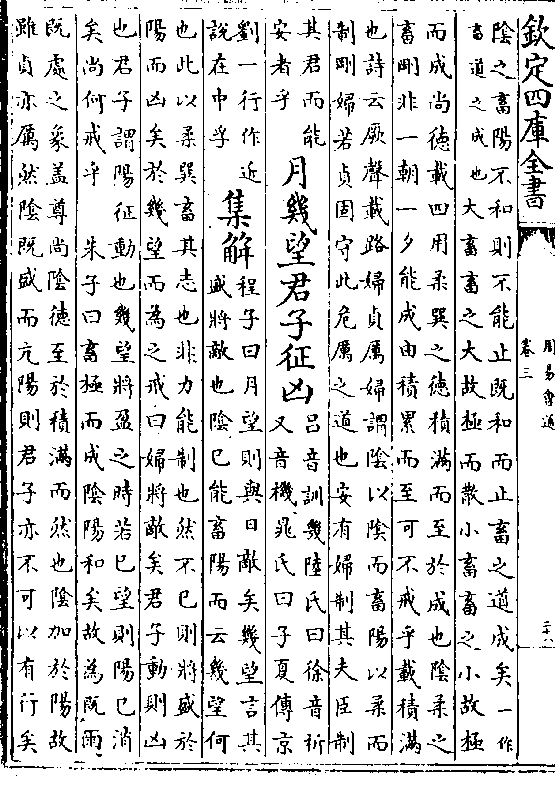 欽定四庫全書
周易會通
卷三
陰之畜陽不和則不能止既和而止畜之道成矣一作
畜道之成也大畜畜之大故極而散小畜畜之小故極
而成尚德載四用柔巽之德積滿而至於成也陰柔之
畜剛非一朝一夕能成由積累而至可不戒乎載積滿
也詩云厥聲載路婦貞厲婦謂陰以陰而畜陽以柔而
制剛婦若貞固守此危厲之道也安有婦制其夫臣制
其君而能
安者乎
月幾望君子征凶
呂音訓幾陸氏曰徐音祈
又音機晁氏曰子夏傳京
劉一行作近
說在中孚
集解
程子曰月望則與日敵矣幾望言其
盛將敵也陰已能畜陽而云幾望何
也此以柔巽畜其志也非力能制也然不已則將盛於
陽而凶矣於幾望而為之戒曰婦將敵矣君子動則凶
也君子謂陽征動也幾望將盈之時若已望則陽已消
矣尚何戒乎 朱子曰畜極而成陰陽和矣故為既雨
既處之象蓋尊尚陰德至於積滿而然也陰加於陽故
雖貞亦厲然陰既盛而亢陽則君子亦不可以有行矣